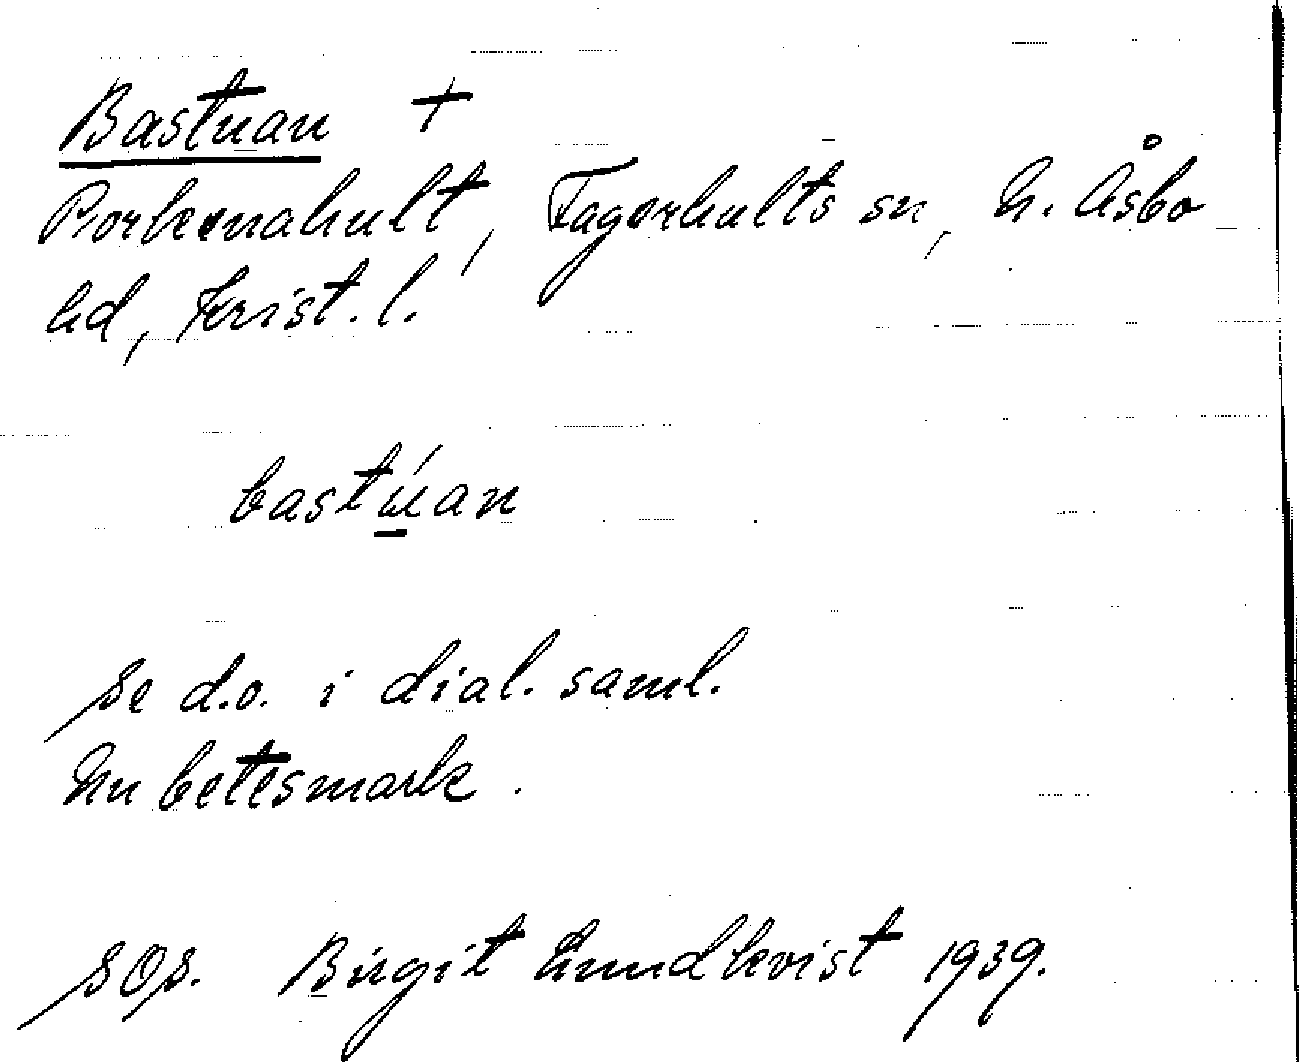 Bastuan +
Porkenahult, Fagerhults sn, N. Åsbo
hd, Krist. l.
bastú̱an
Se d.o. i dial. saml.
Nu betesmark.
SOP. Birgit Lundkvist 1939.